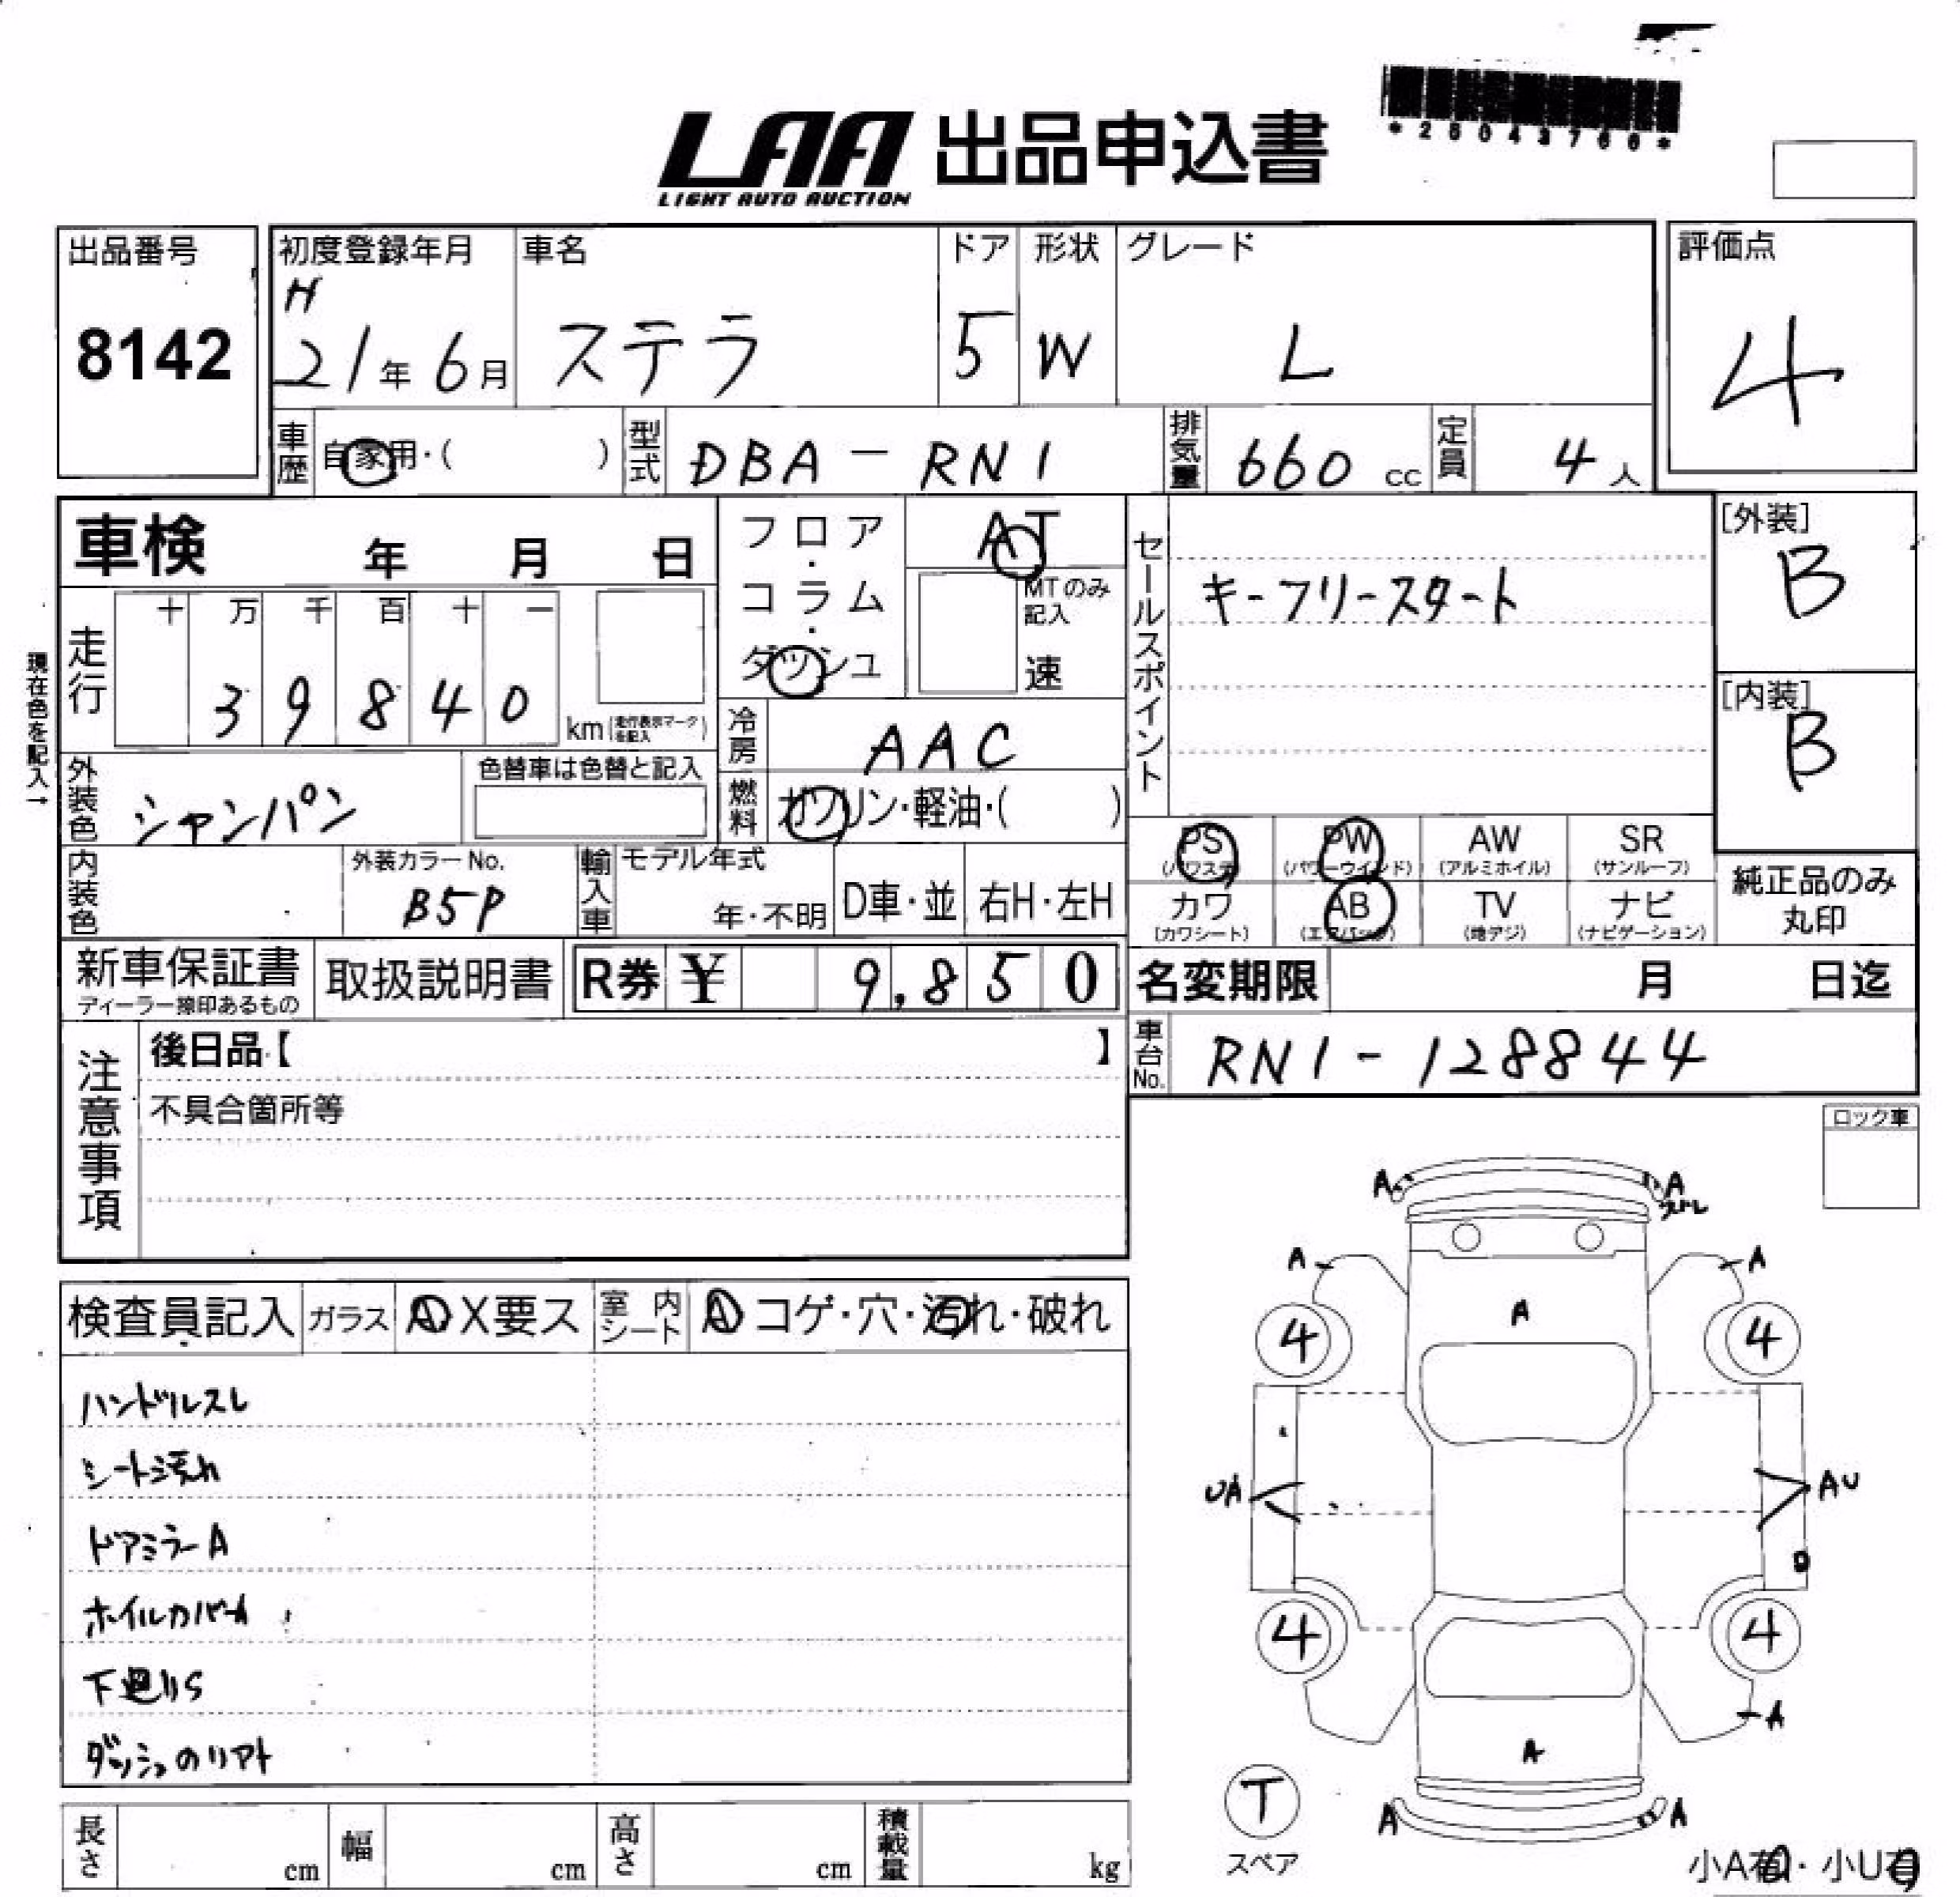 LAA 出品申込書
LIGHT AUTO AUCTION
出品番号
8142
初度登録年月
H
21年6月
車名
ステラ
ドア
5
形状
W
グレード
L
評価点
4
車歴
自家用・( )
型式
DBA-RN1
排気量
660 cc
定員
4 人
車検 年 月 日
フロア・コラム・ダッシュ
AT
MTのみ記入
速
セールスポイント
キーフリースタート
[外装]
B
[内装]
B
現在色を記入→
走行
十 万 千 百 十 一
3 9 8 4 0
km(走行表示マークを記入)
冷房
AAC
外装色
シャンパン
色替車は色替と記入
燃料
ガソリン・軽油・( )
内装色
外装カラーNo.
B5P
輸入車
モデル年式
年・不明
D車・並
右H・左H
PS (パワステ)
PW (パワーウインド)
AW (アルミホイル)
SR (サンルーフ)
カワ (カワシート)
AB (エアバック)
TV (地デジ)
ナビ (ナビゲーション)
純正品のみ
丸印
新車保証書
ディーラー捺印あるもの
取扱説明書
R券 ¥ 9,850
名変期限 月 日迄
車台No.
RN1-128844
注意事項
後日品【 】
不具合箇所等
ロック車
検査員記入
ガラス
A X要ス
室内シート
A コゲ・穴・汚れ・破れ
ハンドルスレ
シート汚れ
ドアミラーA
ホイルカバーA
下廻りS
A
A
ズレ
A
A
A
4
4
UA
AU
4
4
A
A
A
A
T
スペア
長さ cm
幅 cm
高さ cm
積載量 kg
小A有・小U有